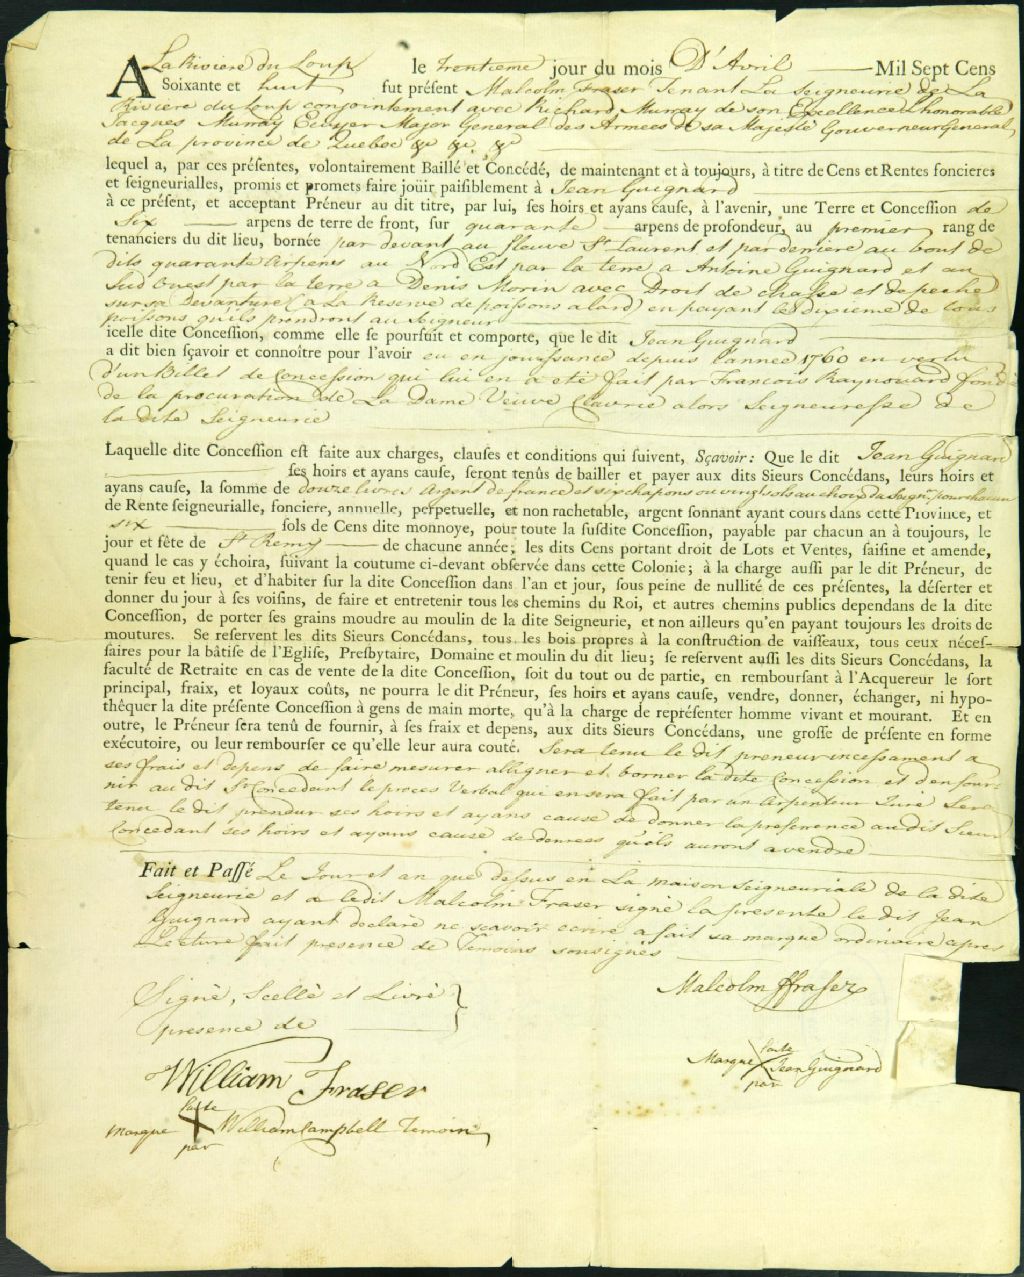 A La Riviere du Loup le trentieme jour du mois D'Avril Mil Sept Cens
Soixante et huit fut préſent Malcolm Fraser Tenant La Seigneurie de La
Riviere du Loup conjointement avec Richard Murray de son Excellence L'honorable
Jacques Murray Ecuyer Major General des Armées de sa Majesté Gouverneur General
de La province de Quebec &c. &c. &c.
lequel a, par ces préſentes, volontairement Baillé et Concédé, de maintenant et à toujours, à titre de Cens et Rentes foncieres
et ſeigneurialles, promis et promets faire joüir paiſiblement à Jean Guignard
à ce préſent, et acceptant Préneur au dit titre, par lui, ſes hoirs et ayans cauſe, à l'avenir, une Terre et Conceſſion de
Six arpens de terre de front, ſur quarante arpens de profondeur, au premier rang de
tenanciers du dit lieu, bornée par devant au fleuve St. Laurent et par deriere au bout de
dits quarante Arpens au Nord Est par la terre a Antoine Guignard et au
Sud Ouest par la terre a Denis Morin avec Droit de chasse et de peche
sur sa devanture (a La Reserve de poissons a lard) en payant le dixiéme de tous
poissons qu'ils prendront au Seigneur
icelle dite Conceſſion, comme elle ſe pourſuit et comporte, que le dit Jean Guignard
a dit bien ſçavoir et connoître pour l'avoir eu en jouissance depuis l'année 1760 en vertu
d'un Billet de Concession qui lui en a eté fait par Francois Raynouard fondé
de la procuration de La Dame Veuve Claverie alors Seigneuresse de
la dite Seigneurie
Laquelle dite Conceſſion eſt faite aux charges, clauſes et conditions qui ſuivent, Sçavoir: Que le dit Jean Guignard
ſes hoirs et ayans cauſe, ſeront tenûs de bailler et payer aux dits Sieurs Concédans, leurs hoirs et
ayans cauſe, la ſomme de douze livres Argent de france et six chapons ou vingt sols au choix du Seigr. pour chacun
de Rente ſeigneurialle, fonciere, annuelle, perpetuelle, et non rachetable, argent ſonnant ayant cours dans cette Province, et
six ſols de Cens dite monnoye, pour toute la ſuſdite Conceſſion, payable par chacun an à toujours, le
jour et fête de St. Remy de chacune année; les dits Cens portant droit de Lots et Ventes, ſaiſine et amende,
quand le cas y échoira, ſuivant la coutume ci-devant obſervée dans cette Colonie; à la charge auſſi par le dit Préneur, de
tenir feu et lieu, et d'habiter ſur la dite Conceſſion dans l'an et jour, ſous peine de nullité de ces préſentes, la déſerter et
donner du jour à ſes voiſins, de faire et entretenir tous les chemins du Roi, et autres chemins publics dependans de la dite
Conceſſion, de porter ſes grains moudre au moulin de la dite Seigneurie, et non ailleurs qu'en payant toujours les droits de
moutures. Se reſervent les dits Sieurs Concédans, tous les bois propres à la conſtruction de vaiſſeaux, tous ceux néceſ-
ſaires pour la bâtiſe de l'Egliſe, Presbytaire, Domaine et moulin du dit lieu; ſe reſervent auſſi les dits Sieurs Concédans, la
faculté de Retraite en cas de vente de la dite Conceſſion, ſoit du tout ou de partie, en rembourſant à l'Acquereur le ſort
principal, fraix, et loyaux coûts, ne pourra le dit Préneur, ſes hoirs et ayans cauſe, vendre, donner, échanger, ni hypo-
théquer la dite préſente Conceſſion à gens de main morte, qu'à la charge de repréſenter homme vivant et mourant. Et en
outre, le Préneur ſera tenû de fournir, à ſes fraix et depens, aux dits Sieurs Concédans, une groſſe de préſente en forme
exécutoire, ou leur rembourſer ce qu'elle leur aura couté. Sera tenu le dit preneur incessament a
ses frais et depens de faire mesurer alligner et borner la dite Concession et d'en four-
nir au dit Sr. Concedant le procès Verbal qui en sera fait par un Arpenteur Juré Sera
tenu le dit preneur ses hoirs et ayans cause de donner la preference au dit Sieur
Concedant ses hoirs et ayans cause de denrees qu'ils auront a vendre
Fait et Paſſé Le Jour et an que dessus en La maison Seigneuriale de la dite
Seigneurie et a ledit Malcolm Fraser signé la presente le dit Jean
Guignard ayant declaré ne scavoir ecrire a fait sa marque ordinaire apres
Lecture fait presence de Temoins sousignés
Signé, Scellé et Livré
presence de
Malcolm Ffraser
William Fraser
Marque faite X par Jean Guignard
Marque faite X par William Campbell Temoin